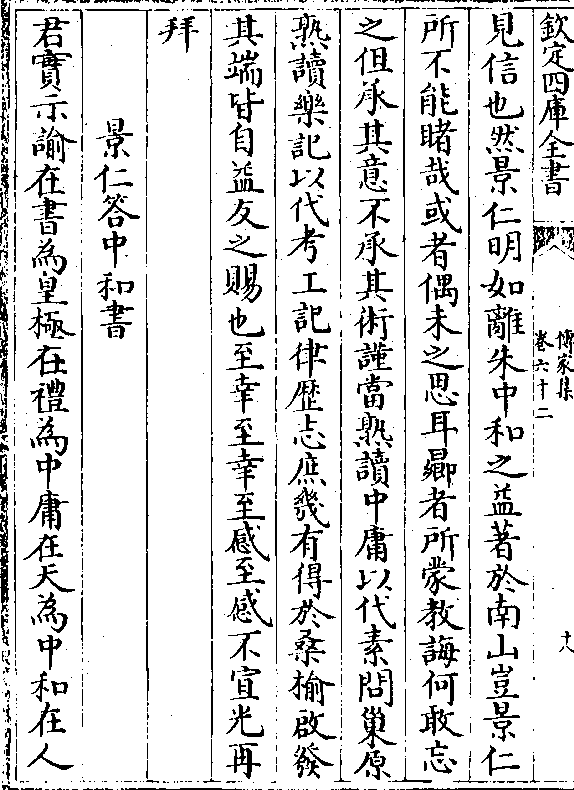 欽定四庫全書
傳家集
卷六十二
十八
見信也然景仁明如離朱中和之益著於南山豈景仁
所不能睹哉或者偶未之思耳曏者所蒙教誨何敢忘
之但承其意不承其術謹當熟讀中庸以代素問巢原
熟讀樂記以代考工記律歴志庶幾有得於桑榆啟發
其端皆自益友之賜也至幸至幸至感至感不宣光再
拜
景仁答中和書
君實示諭在書為皇極在禮為中庸在天為中和在人